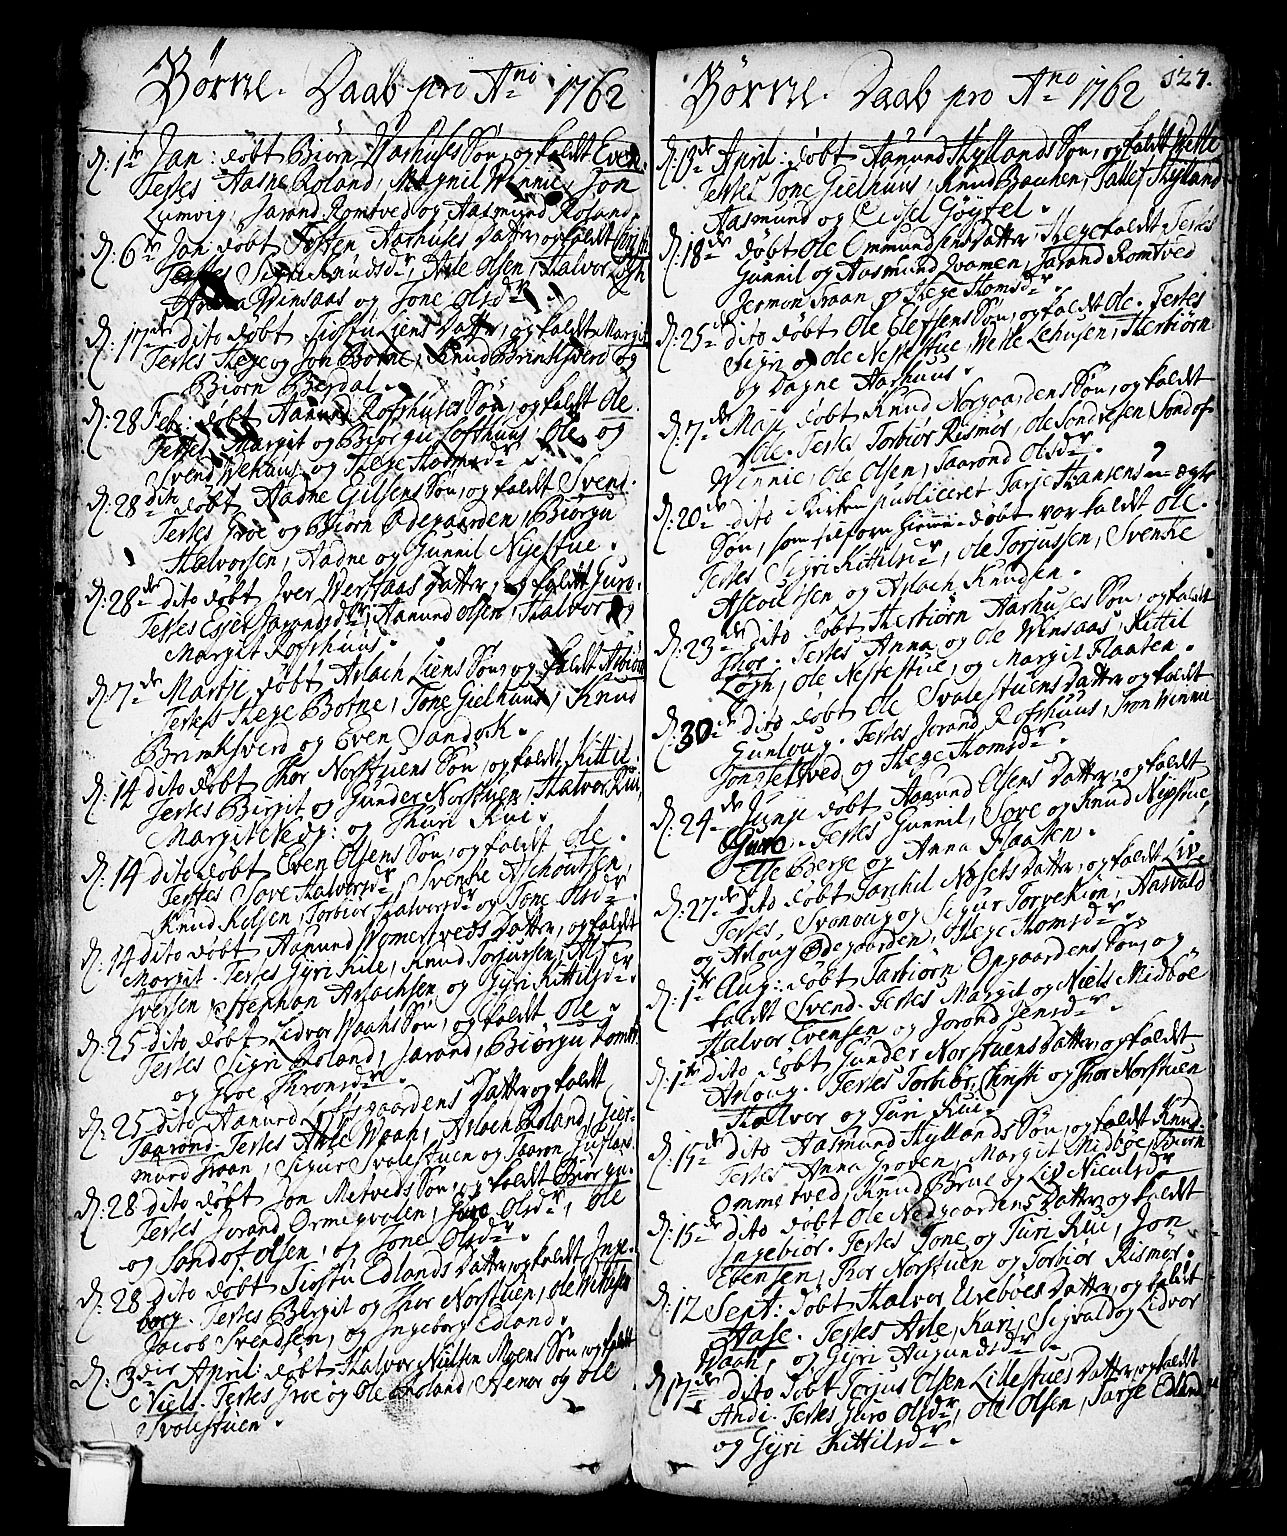 Børne. Daab pro Ano 1762
d: 1te Jan: døbt Biørn Aarhuses Søn, og kaldt Even.
Testes Aasne Roland, Magnil Winnie, Jon
Lumvig, Jarand Romtved og Aasmund Roland.
d: 6te Jan døbt Aarhuses Datter og kaldt
Testes Sigri Knudsdr, Asle Olsen, Halvor Løgn
Anna Winsaas og Tone Olsdr.
d: 17de dito døbt Siostu Liens Datter, og kaldt Margit
Testes Hege og Jon Botne, Knud Brinksverd og
Biørn Berdal.
d: 28 Feb: døbt Aanund Rofshuses Søn, og kaldt Ole.
Testes Margit og Biørgu Lofthuus, Ole og
Svend Wehuus og Hege Thomsdr.
d: 28 dito døbt Aadne Gilsens Søn, og kaldt Svend.
Testes Groe og Biørn Ødegaarden, Biørgu
Halvorsen, Aadne og Gunnil Nigestue.
d: 28de dito døbt Iver Werstaas Datter, og kaldt Guro.
Testes Jarandsdr, Aanund Olsen, Halvor og
Margit Rofshuus.
d: 7de Martji døbt Aslach Liens Søn, og kaldt Asbiørn
Testes Hege Botne, Tone Gielhuus, Knud
Brinksverd og Even Sandok.
d: 14 dito døbt Thor Norstuens Søn, og kaldt Kittil.
Testes Birgit og Gunder Norstuen, Halvor Rui,
Margit og Thuri Rui.
d: 14 dito døbt Even Olsens Søn, og kaldt Ole.
Testes Tove Halvorsdr, Svenke Aschoutsen,
Knud Kilsen, Torbiør Halvorsdr og Tone Olsdr.
d: 14 dito døbt Aanund Womertveds Datter, og kaldt
Margit. Testes Gyri Kile, Knud Torjussen, Alf
Iversen, Stephan Aslachsen og Gyri Kittilsdr.
d: 25 dito døbt Lidvor Waahs Søn, og kaldt Ole.
Testes Sigri Roland, Jarand, Biørgu Romtv
og Groe Thronsdr.
d: 25 dito Aanund Datter og kaldt
Taarond. Testes Asle Waah, Aslach Roland, Gier-
mund Traan, Sigur Svalestuen og Taaron Juvland.
d: 28 dito døbt Jon Metveds Søn, og kaldt Biørgu.
Testes Jorand Ormegvalen, Guro Olsdr, Ole
og Sondof Olsen, og Tone Olsdr.
d: 28 dito døbt Siostu Edlands Datter, og kaldt Inge-
borg. Testes Bergit og Thor Norstuen, Ole
Jacob Svendsen, og Ingeborg Edland.
d: 3die April: døbt Halvor Nielsen Moens Søn, og kaldt
Niels. Testes Groe og Ole Roland, Stenor og Ole
Svalestuen.
Børne. Daab pro Ano 1762
127.
d: 13de April: døbt Aanund Hyllands Søn, og kaldt Wetle
Testes Tone Gielhuus, Knud Bauchen, Tallef Hyland
Aasmund og Cidsel Gøytel.
d: 18de døbt Ole Ommundsens Datter Hege kaldt Testes
Gunnil og Aasmund Qvamen, Jarand Romtved
Jermon Traan og Hege Thomsdr.
d: 25de dito døbt Ole Olefsens Søn, og kaldt Ole. Testes
Sigri og Ole Nestestue, Wetle Lehusen, Therbiørn
og Dagne Aarhuus.
d: 7de Maji døbt Knud Norgaardens Søn, og kaldt
Ole. Testes Torbiør Rismør, Ole Sondresen Sondof
Winnie, Ole Olsen, Taarond Olsdr.
d: 20de dito i Kirken publiceret Tarje Hansens ægte
Søn, som tilforn hiemme-døbt var kaldt Ole.
Testes Sigri Kittilsdr, Ole Torjussen, Svenke
Ascoutsen og Aslach Knudsen.
d: 23de dito døbt Therbiørn Aarhuses Søn, og kaldt
Thor. Testes Anna og Ole Winsaas, Kittil
Løgn, Ole Nestestue, og Margit Flaaten.
d: 30de dito døbt Ole Svalestuens Datter og kaldt
Gunloug. Testes Jorand Rofshuus, Tron Winnie
og Hege Thomsdr.
d: 24de Junji døbt Aanund Olsens Datter, og kaldt
Guro. Testes Gunnil, Tove og Knud Nigestue,
Else Berge og Anna Flaaten.
d: 27de dito døbt Tarchil Næsets Datter, og kaldt Liv.
Testes, Svanoug og Sigur Torvekiøn, Aasvald
og Asloug Ødegaarden, Hege Thomsdr.
d: 1te Aug: døbt Tarbiørn Opgaardens Søn, og
kaldt Svend. Testes Margit og Niels Midbøe
Halvor Evensen og Jorond Jensdr.
d: 1te dito døbt Gunder Norstuens Datter, og kaldt
Asloug. Testes Torbiør, Christi og Thor Norstuen
Halvor og Turi Rui.
d: 15de dito Aasmund Hyllands Søn, og kaldt Knud.
Testes Anna Groven, Margit Midbøe, Biørn
Ommetved, Knud Brue og Liv Niculsdr
d: 15de dito døbt Ole Nedgaardens Datter og kaldt
Ingebiør. Testes Tone og Turi Rui, Jon
Ebensen, Thor Norstuen og Torbiør Rismør.
d: 12 Sept: døbt Halvor Urebøes Datter, og kaldt
Aase. Testes Asle, Kari, Sigvald og Lidvor
Waah, og Gyri Augundsdr.
d: 17de dito døbt Torjus Olsen Lillestues Datter, og kaldt
Andi. Testes Guro Olsdr, Ole Olsen, Tarje Edland
og Gyri Kittilsdr.